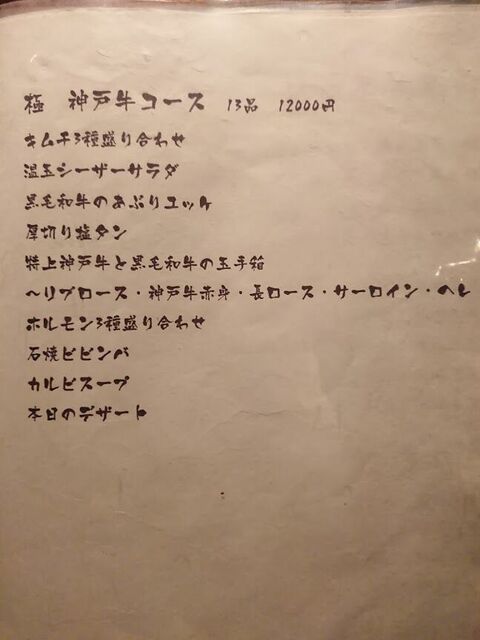 極 神戸牛コース 13品 12000円
キムチ3種盛り合わせ
温玉シーザーサラダ
黒毛和牛のあぶりユッケ
厚切り塩タン
特上神戸牛と黒毛和牛の玉手箱
～リブロース・神戸牛赤身・長ロース・サーロイン・ヘレ
ホルモン3種盛り合わせ
石焼ビビンバ
カルビスープ
本日のデザート